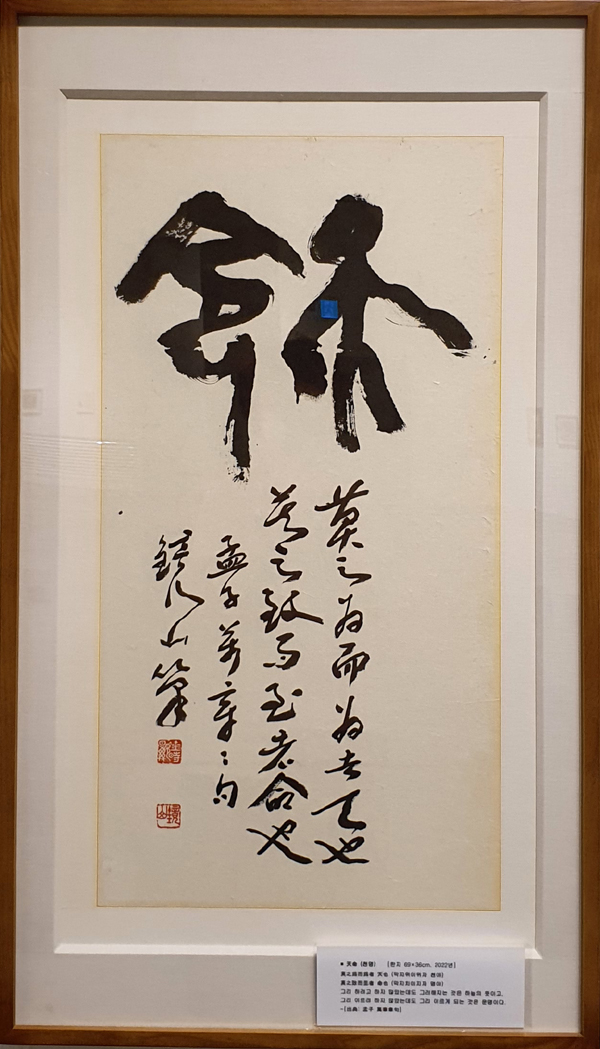 天命
莫之為而為者天也
莫之致而至者命也
孟子萬章〻句
山筆
● 天命 (천명) [한지 69×36cm. 2022년]
莫之爲而爲者 天也 (막지위이위자 천야)
莫之致而至者 命也 (막지치이지자 명야)
그리 하려고 하지 않았는데도 그러해지는 것은 하늘의 뜻이고,
그리 이르려 하지 않았는데도 그리 이르게 되는 것은 운명이다.
-[出典: 孟子 萬章章句]